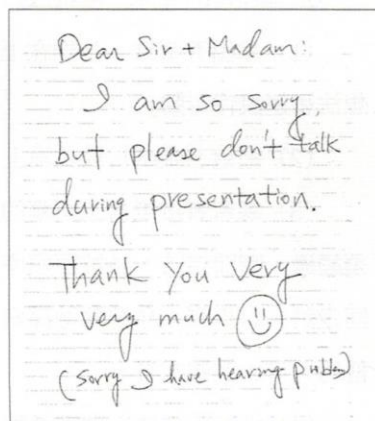 Dear Sir + Madam:
I am so sorry,
but please don't talk
during presentation.
Thank you very
very much
(sorry I have hearing problem)